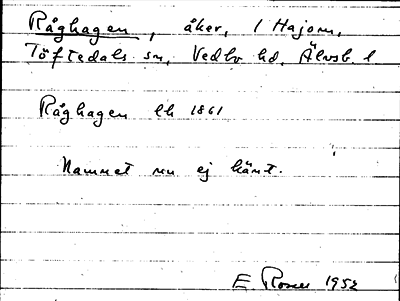 Råghagen, åker, 1 Hajom,
Töftedals sn, Vedbo hd, Älvsb. l
Råghagen lh 1861
Namnet nu ej känt.
E Rosell 1952